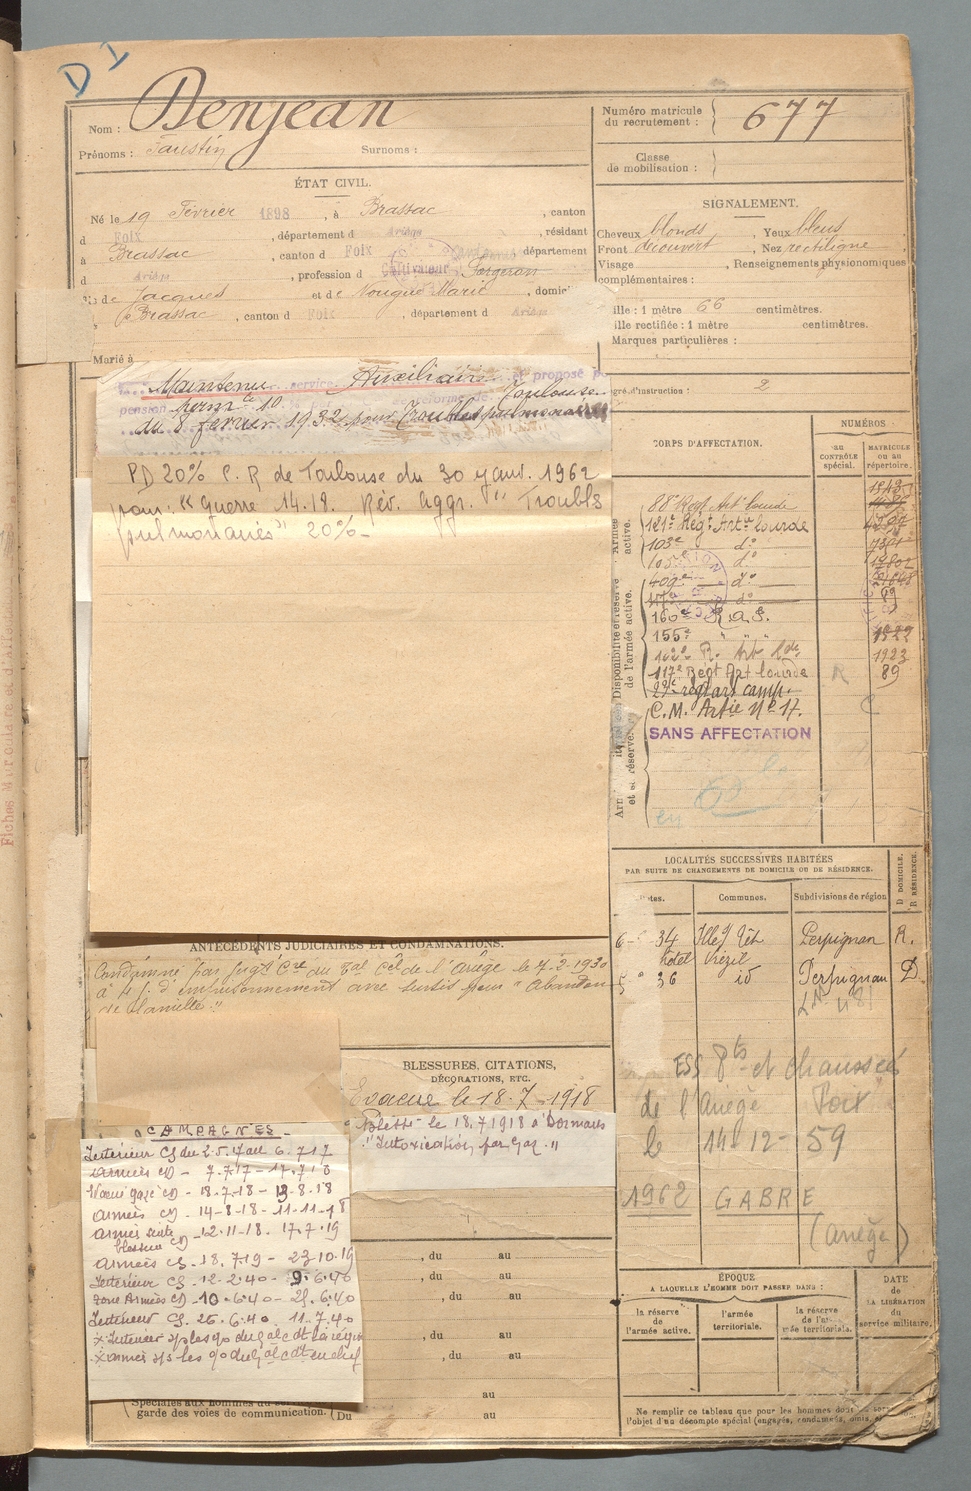 D I
Nom : Denjean
Prénoms : Faustin Surnoms :
Numéro matricule
du recrutement : 677
Classe
de mobilisation :
ÉTAT CIVIL.
Né le 19 Février 1898, à Brassac, canton
d Foix, département d Ariège, résidant
à Brassac, canton d Foix, département
d Ariège, profession d Cultivateur Forgeron
de Jacques et de Nougué Marie, domici
Brassac, canton d Foix, département d Ariège
Marié à
SIGNALEMENT.
Cheveux blonds, Yeux bleus
Front découvert, Nez rectiligne,
Visage, Renseignements physionomiques
complémentaires :
ille : 1 mètre 66 centimètres.
ille rectifiée : 1 mètre centimètres.
Marques particulières :
gré d'instruction : 2
Maintenu service Auxiliaire et proposé p
pension perm te 10 réforme de Toulouse
du 8 février 1932 pour Troubles pulmonaires
PD 20% C. R de Toulouse du 30 janv. 1962
pour : "Guerre 14.18. Rév. Aggr. " Troubls
pulmonaires" 20% -
CORPS D'AFFECTATION.
NUMÉROS
au
CONTRÔLE
spécial.
MATRICULE
ou au
répertoire.
Disponibilité et réserve
de l'armée active.
Armée
active.
88e Regt Art lourde
121e Régt Artie lourde
103e do
105e do
409e do
117e do
160e R.A.P.
155e " "
142e R. Art. Lde 1923
117e Regt Art lourde R 89
24e reg art camp.
C.M. Artie No 17. C
SANS AFFECTATION
LOCALITÉS SUCCESSIVES HABITÉES
PAR SUITE DE CHANGEMENTS DE DOMICILE OU DE RÉSIDENCE.
Communes. Subdivisions de région
D DOMICILE.
R RÉSIDENCE.
34 Ille s/ Têt Perpignan R.
hôtel
36 id Perpignan D
ESS Pts et chaussées
de l'Ariège Foix
le 14-12-59
1962 GABRE
(Ariège)
ANTÉCÉDENTS JUDICIAIRES ET CONDAMNATIONS.
Condamné par jugt Cre du Tal Cel de l'Ariège le 7-2-1930
à 4 j. d'emprisonnement avec sursis pour "Abandon
de famille"
BLESSURES, CITATIONS,
DÉCORATIONS, ETC.
Evacué le 18-7-1918
Blessé le 18.7.1918 à Dormans
"Intoxication par gaz"
CAMPAGNES -
Intérieur CS du 2.5.17 au 6.7.17
Armées CD - 7.7.17 - 17.7.18
Evacué gazé CD - 18-7-18 - 13-8-18
Armées CD - 14-8-18 - 11-11-18
Armées suite
blessure CD - 12-11-18. 17.7.19
Armées CS - 18.7.19 - 23.10.19
Intérieur CS - 12-2-40 - 9.6.40
Zone Armées CD - 10.6.40 - 25.6.40
Intérieur CS. 26.6.40. 11.7.40
x Intérieur s/s les go du Gal cdt la région
x Armées s/s les go du Gal cdt en chef
, du au
, du au
, du au
, du au
, du au
au
Spéciales aux hommes du
garde des voies de communication. Du au
ÉPOQUE
A LAQUELLE L'HOMME DOIT PASSER DANS :
la réserve
de l'armée active.
l'armée
territoriale.
la réserve
de l'ar-
mée territoriale.
DATE
de
LA LIBÉRATION
du
service militaire.
Ne remplir ce tableau que pour les hommes dont
l'objet d'un décompte spécial (engagés, condamnés, omis,